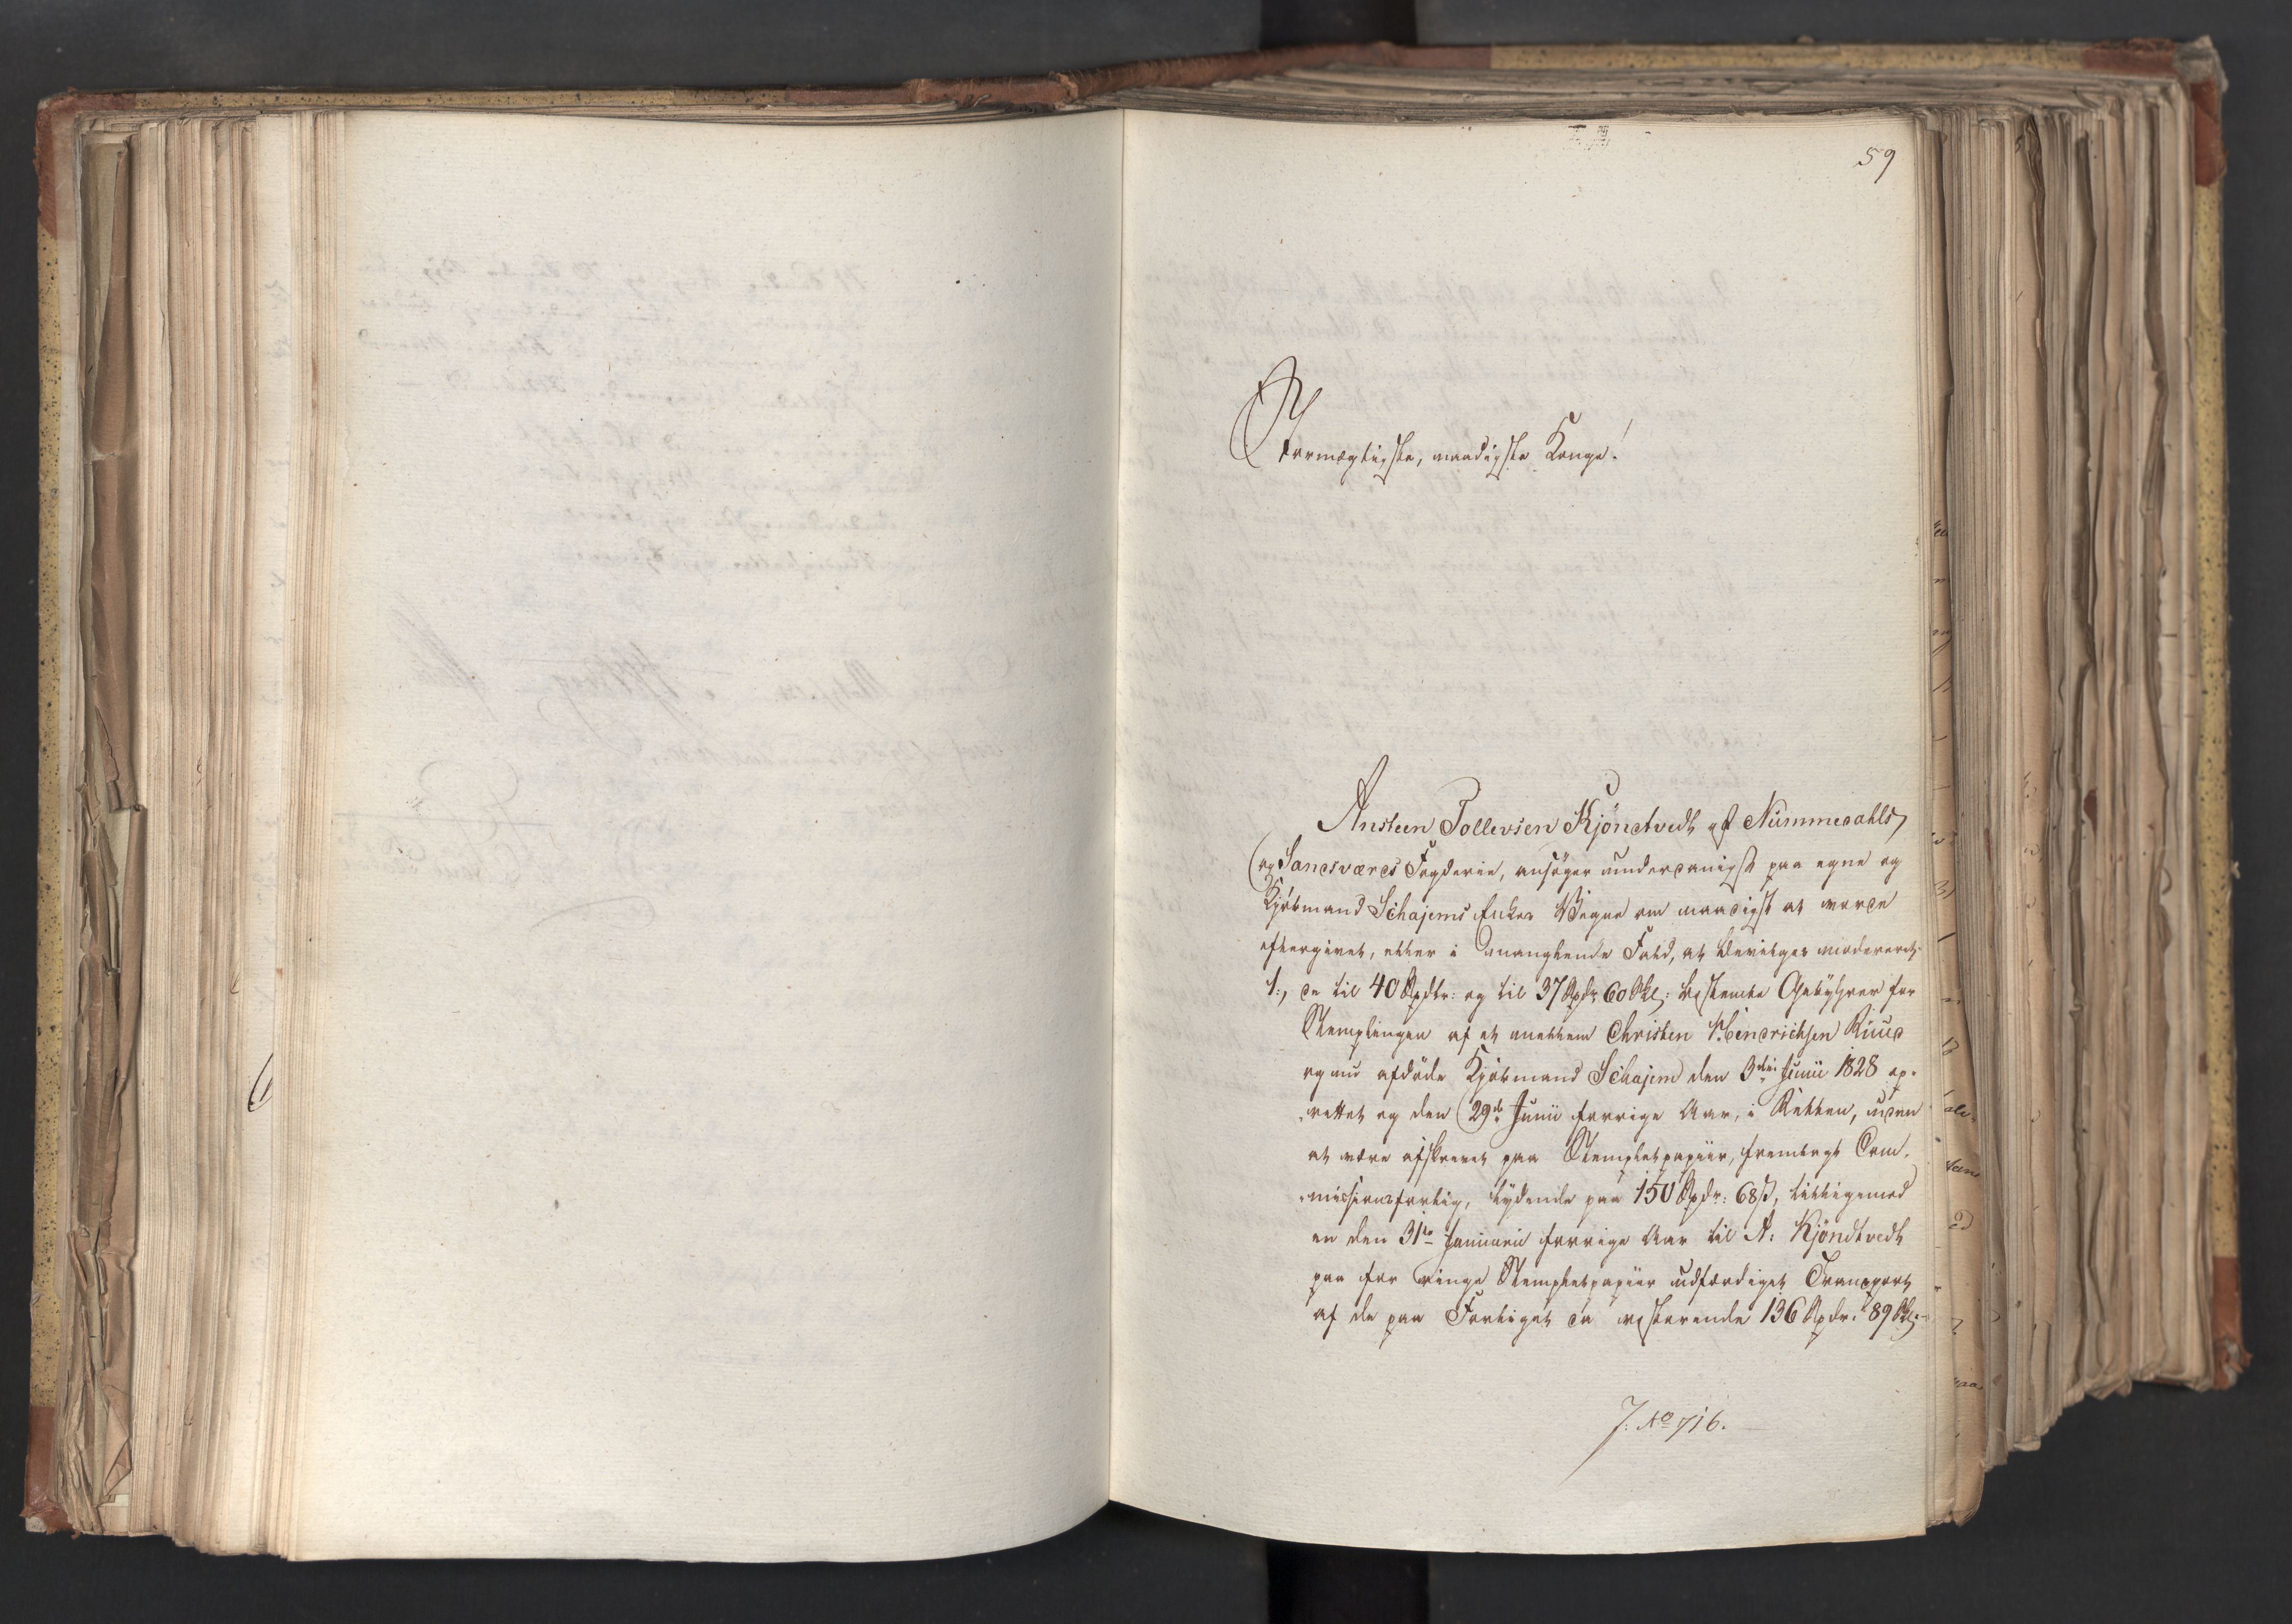 59
Stormægtigste, naadigste Konge!
Ansteen Tollevsen Kjöndtvedt af Nummedahls
og Sandsværds Fogderie, ansøger underdanigst paa egne og
Kjøbmand Schajems Enkes Vegne om naadigst at vorde
eftergivet, eller i manglende Fald, at bevilges modereret
1., de til 40 Spdlr: og til 37 Spdr 60 Skl: bestemte Gebyhrer for
Stemplingen af et mellem Christen Hendrichsen Ruud
og nu afdøde Kjøbmand Schajem den 3die Junii 1828 op-
rettet og den 29de Junii forrige Aar, i Retten, uden
at være afskrevet paa Stempletpapiir, fremlagt Com-
missionsforlig, lydende paa 150 Spdr: 68 ß, tilligemed
en den 31te Januarii forrige Aar til A: Kjöndtvedt
paa for ringe Stempletpapiir udfærdiget Transport
af de paa Forliget da resterende 136 Spdr: 89 Skl:
J: No 716.